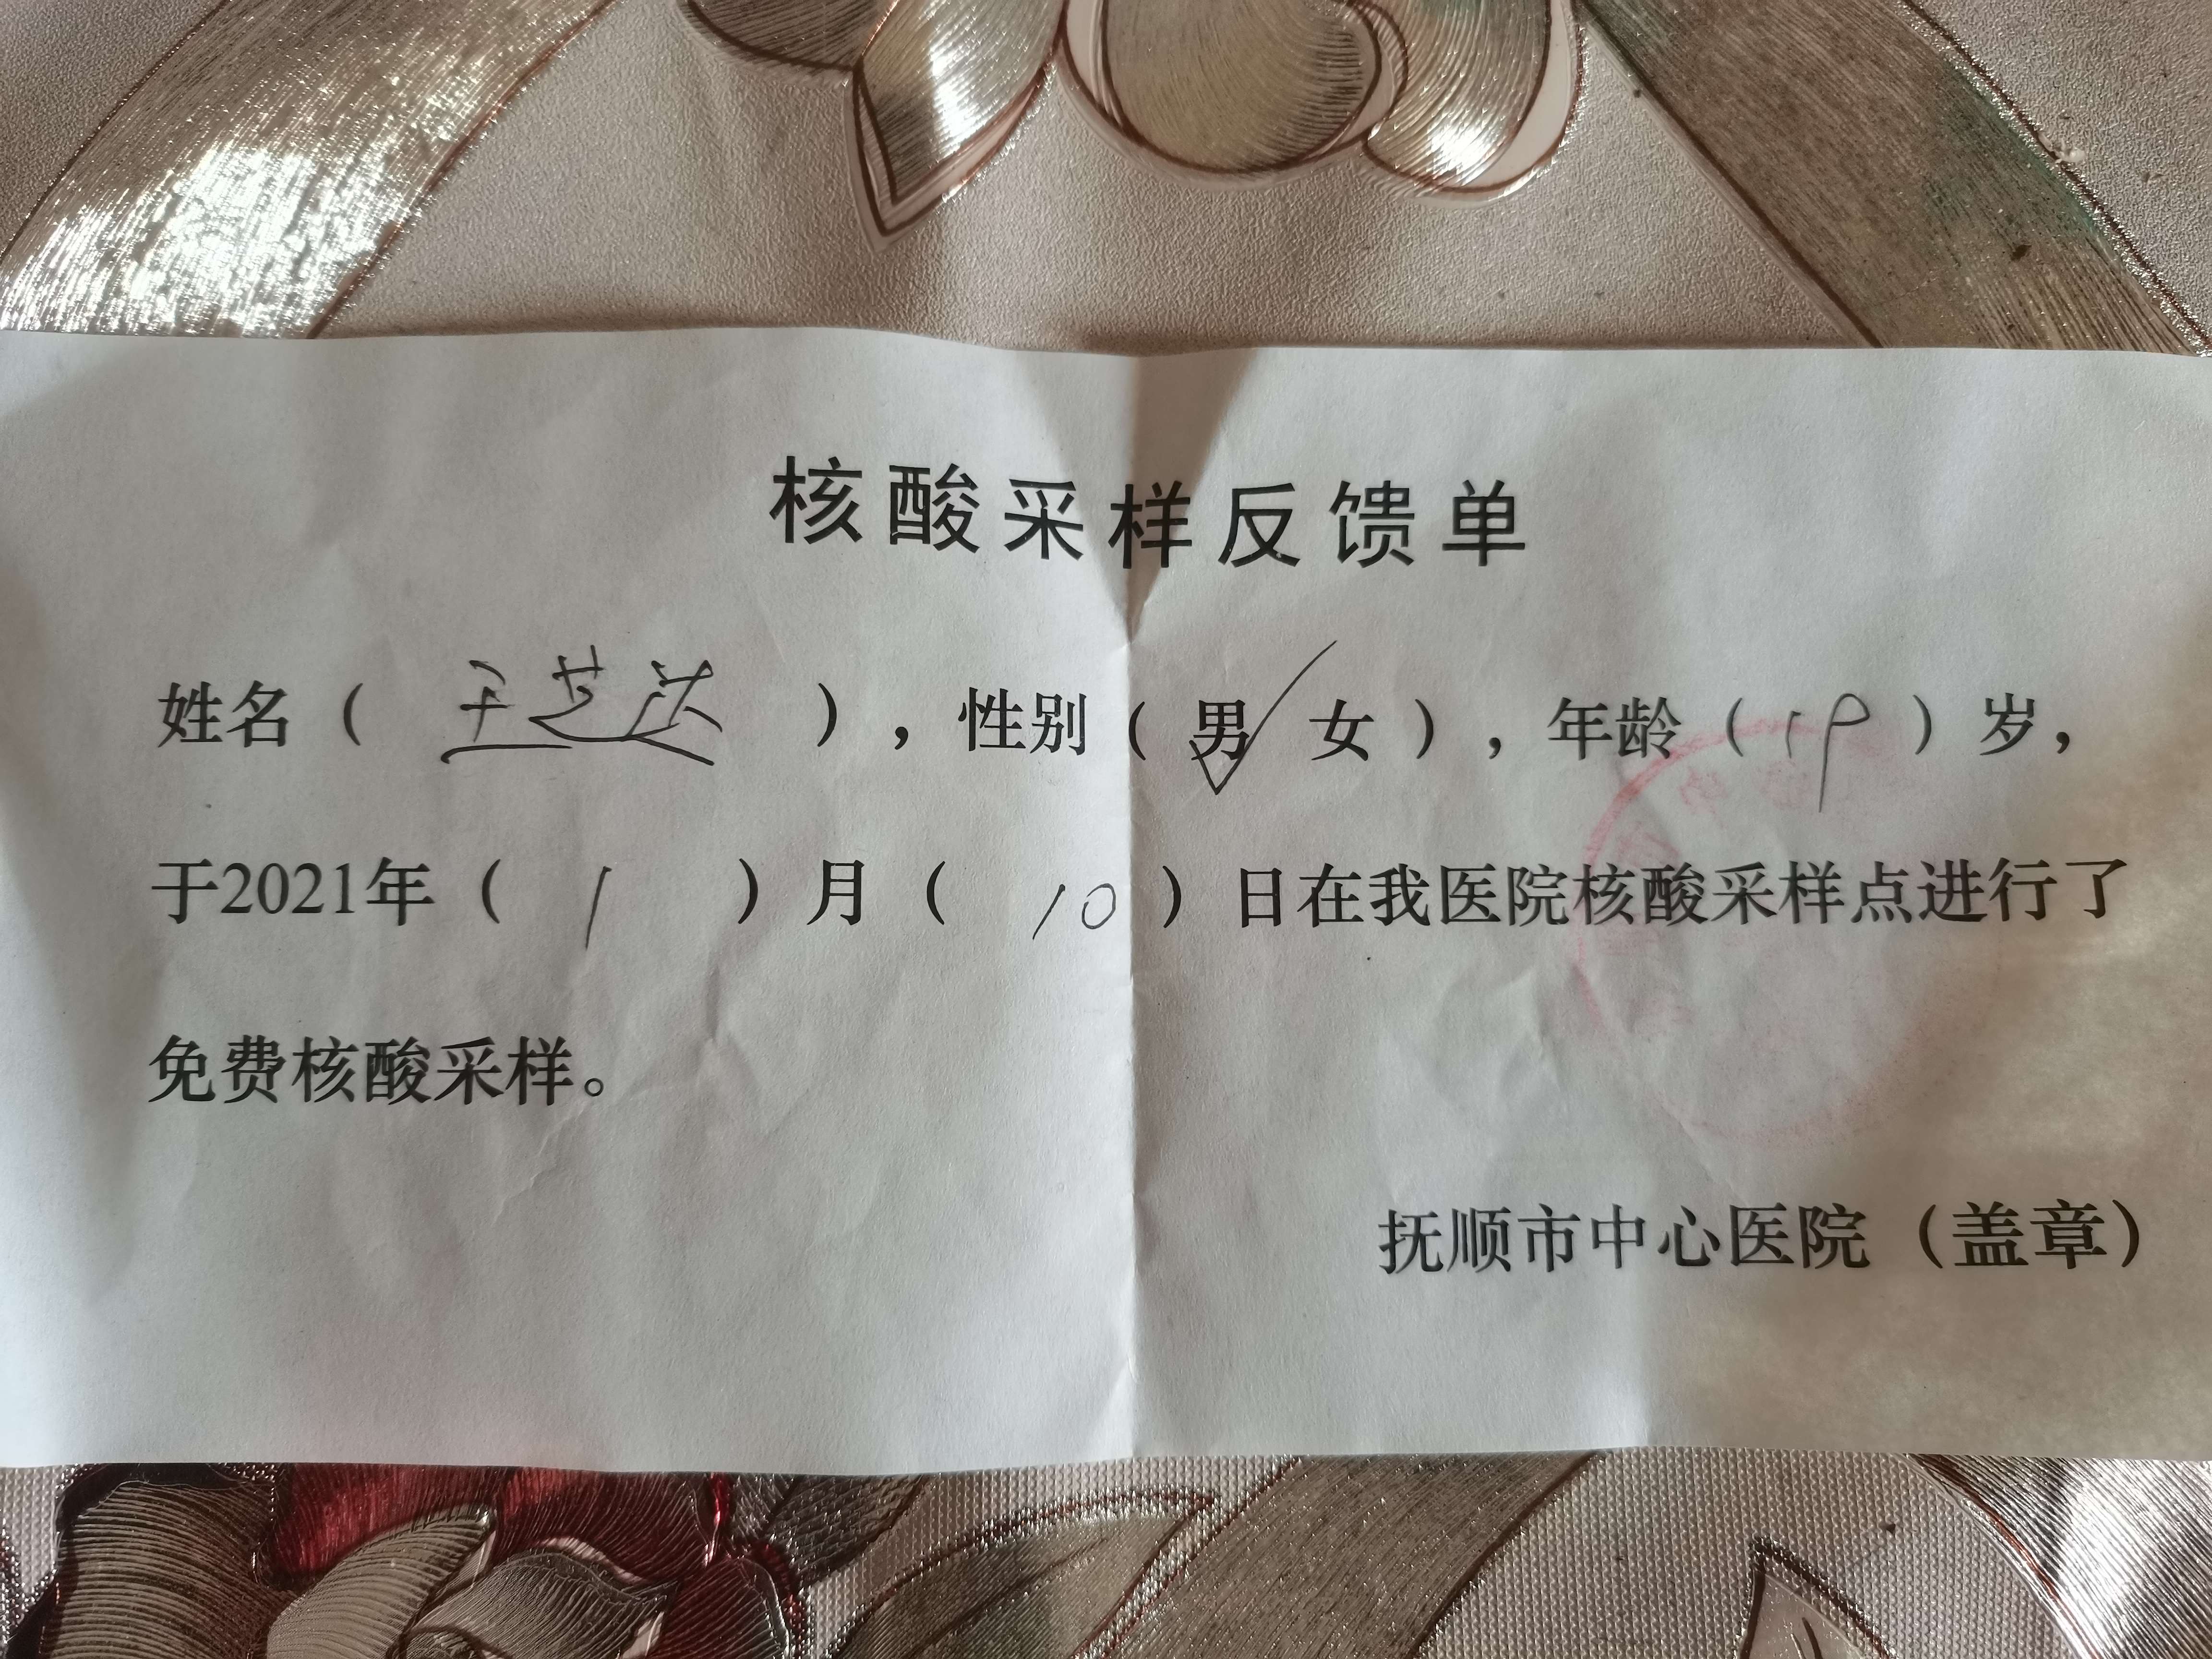 核酸采样反馈单
姓名（王芝达），性别（男√ 女），年龄（19）岁，
于2021年（1）月（10）日在我医院核酸采样点进行了
免费核酸采样。
抚顺市中心医院（盖章）